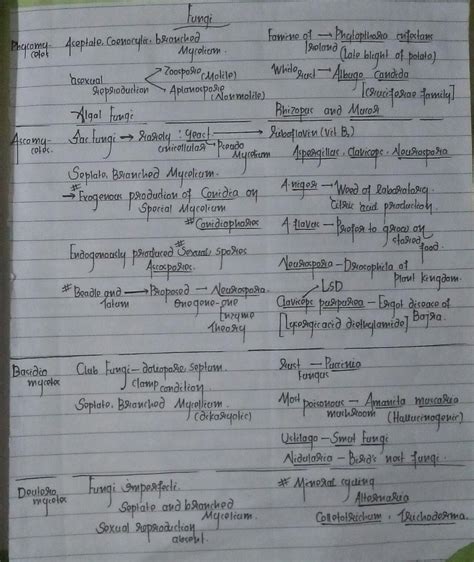 Fungi
Phycomy-
cetes
Aseptate, Coenocytic, branched
Mycelium.
Famine of → Phytopthora infestans
Ireland
(Late blight of potato)
Asexual
Reproduction
Zoospore (Motile)
Aplanospore (Nonmotile)
White rust → Albugo Candida
[Cruciferae family]
Algal Fungi
Rhizopus and Mucor
Ascomy-
cetes.
Sac Fungi → Rarely : Yeast → Riboflavin (Vit B₂)
unicellular
Pseudo
Mycelium
Aspergillus, Claviceps, Neurospora
Septate, Branched Mycelium.
#
→ Exogenous production of Conidia on
Special Mycelium
# Conidiophores
A. niger → Weed of laboratory.
Citric acid production.
A flavus — Prefer to grow on
stored
food.
Endogenously produced # Sexual spores
Ascospores.
Neurospora — Drosophila of
Plant Kingdom.
# Beadle and → Proposed → Neurospora.
Tatum
One gene-one
Enzyme
Theory
LSD
Claviceps purpurea — Ergot disease of
Bajra.
[Lysergic acid diethylamide]
Basidio
mycetes
Club Fungi — dolipore, septum.
clamp condition.
Rust — Puccinia
Fungus
Septate, Branched Mycelium.
(dikaryotic)
Most poisonous — Amanita muscaria
mushroom (Hallucinogenic)
Ustilago — Smut Fungi
Nidularia — Bird's nest fungi.
Deutero
mycetes
Fungi imperfecti.
Septate and branched
Mycelium.
Sexual reproduction
absent.
# Mineral cycling
Alternaria
Colletotrichum, Trichoderma.